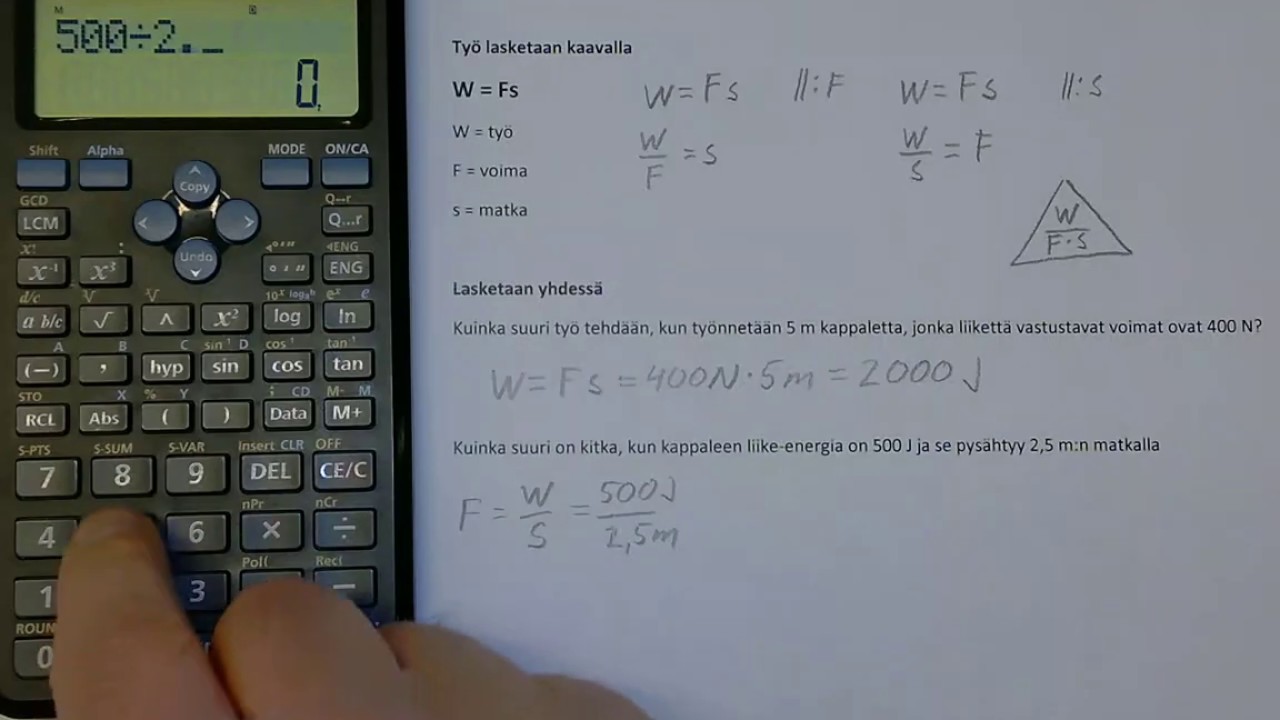 M
500÷2._
0.
Shift Alpha MODE ON/CA
Copy
GCD
LCM
Q↔r
Q...r
Undo
◄ENG
ENG
X!
x⁻¹ x³
d/c
a b/c √ ∧ x² log ln
10ˣ eˣ e
A B C sin⁻¹ D cos⁻¹ tan⁻¹
(—) , hyp sin cos tan
STO X % Y ; CD M- M
RCL Abs ( ) Data M+
S-PTS S-SUM S-VAR Insert CLR OFF
7 8 9 DEL CE/C
nPr nCr
4 6 × ÷
Pol( Rec(
1 3 —
ROUN
0
Työ lasketaan kaavalla
W = Fs
W = työ
F = voima
s = matka
W = Fs //:F W = Fs //:s
W/F = s W/s = F
W
F·s
Lasketaan yhdessä
Kuinka suuri työ tehdään, kun työnnetään 5 m kappaletta, jonka liikettä vastustavat voimat ovat 400 N?
W = Fs = 400N·5m = 2000 J
Kuinka suuri on kitka, kun kappaleen liike-energia on 500 J ja se pysähtyy 2,5 m:n matkalla
F = W/s = 500J/2,5m